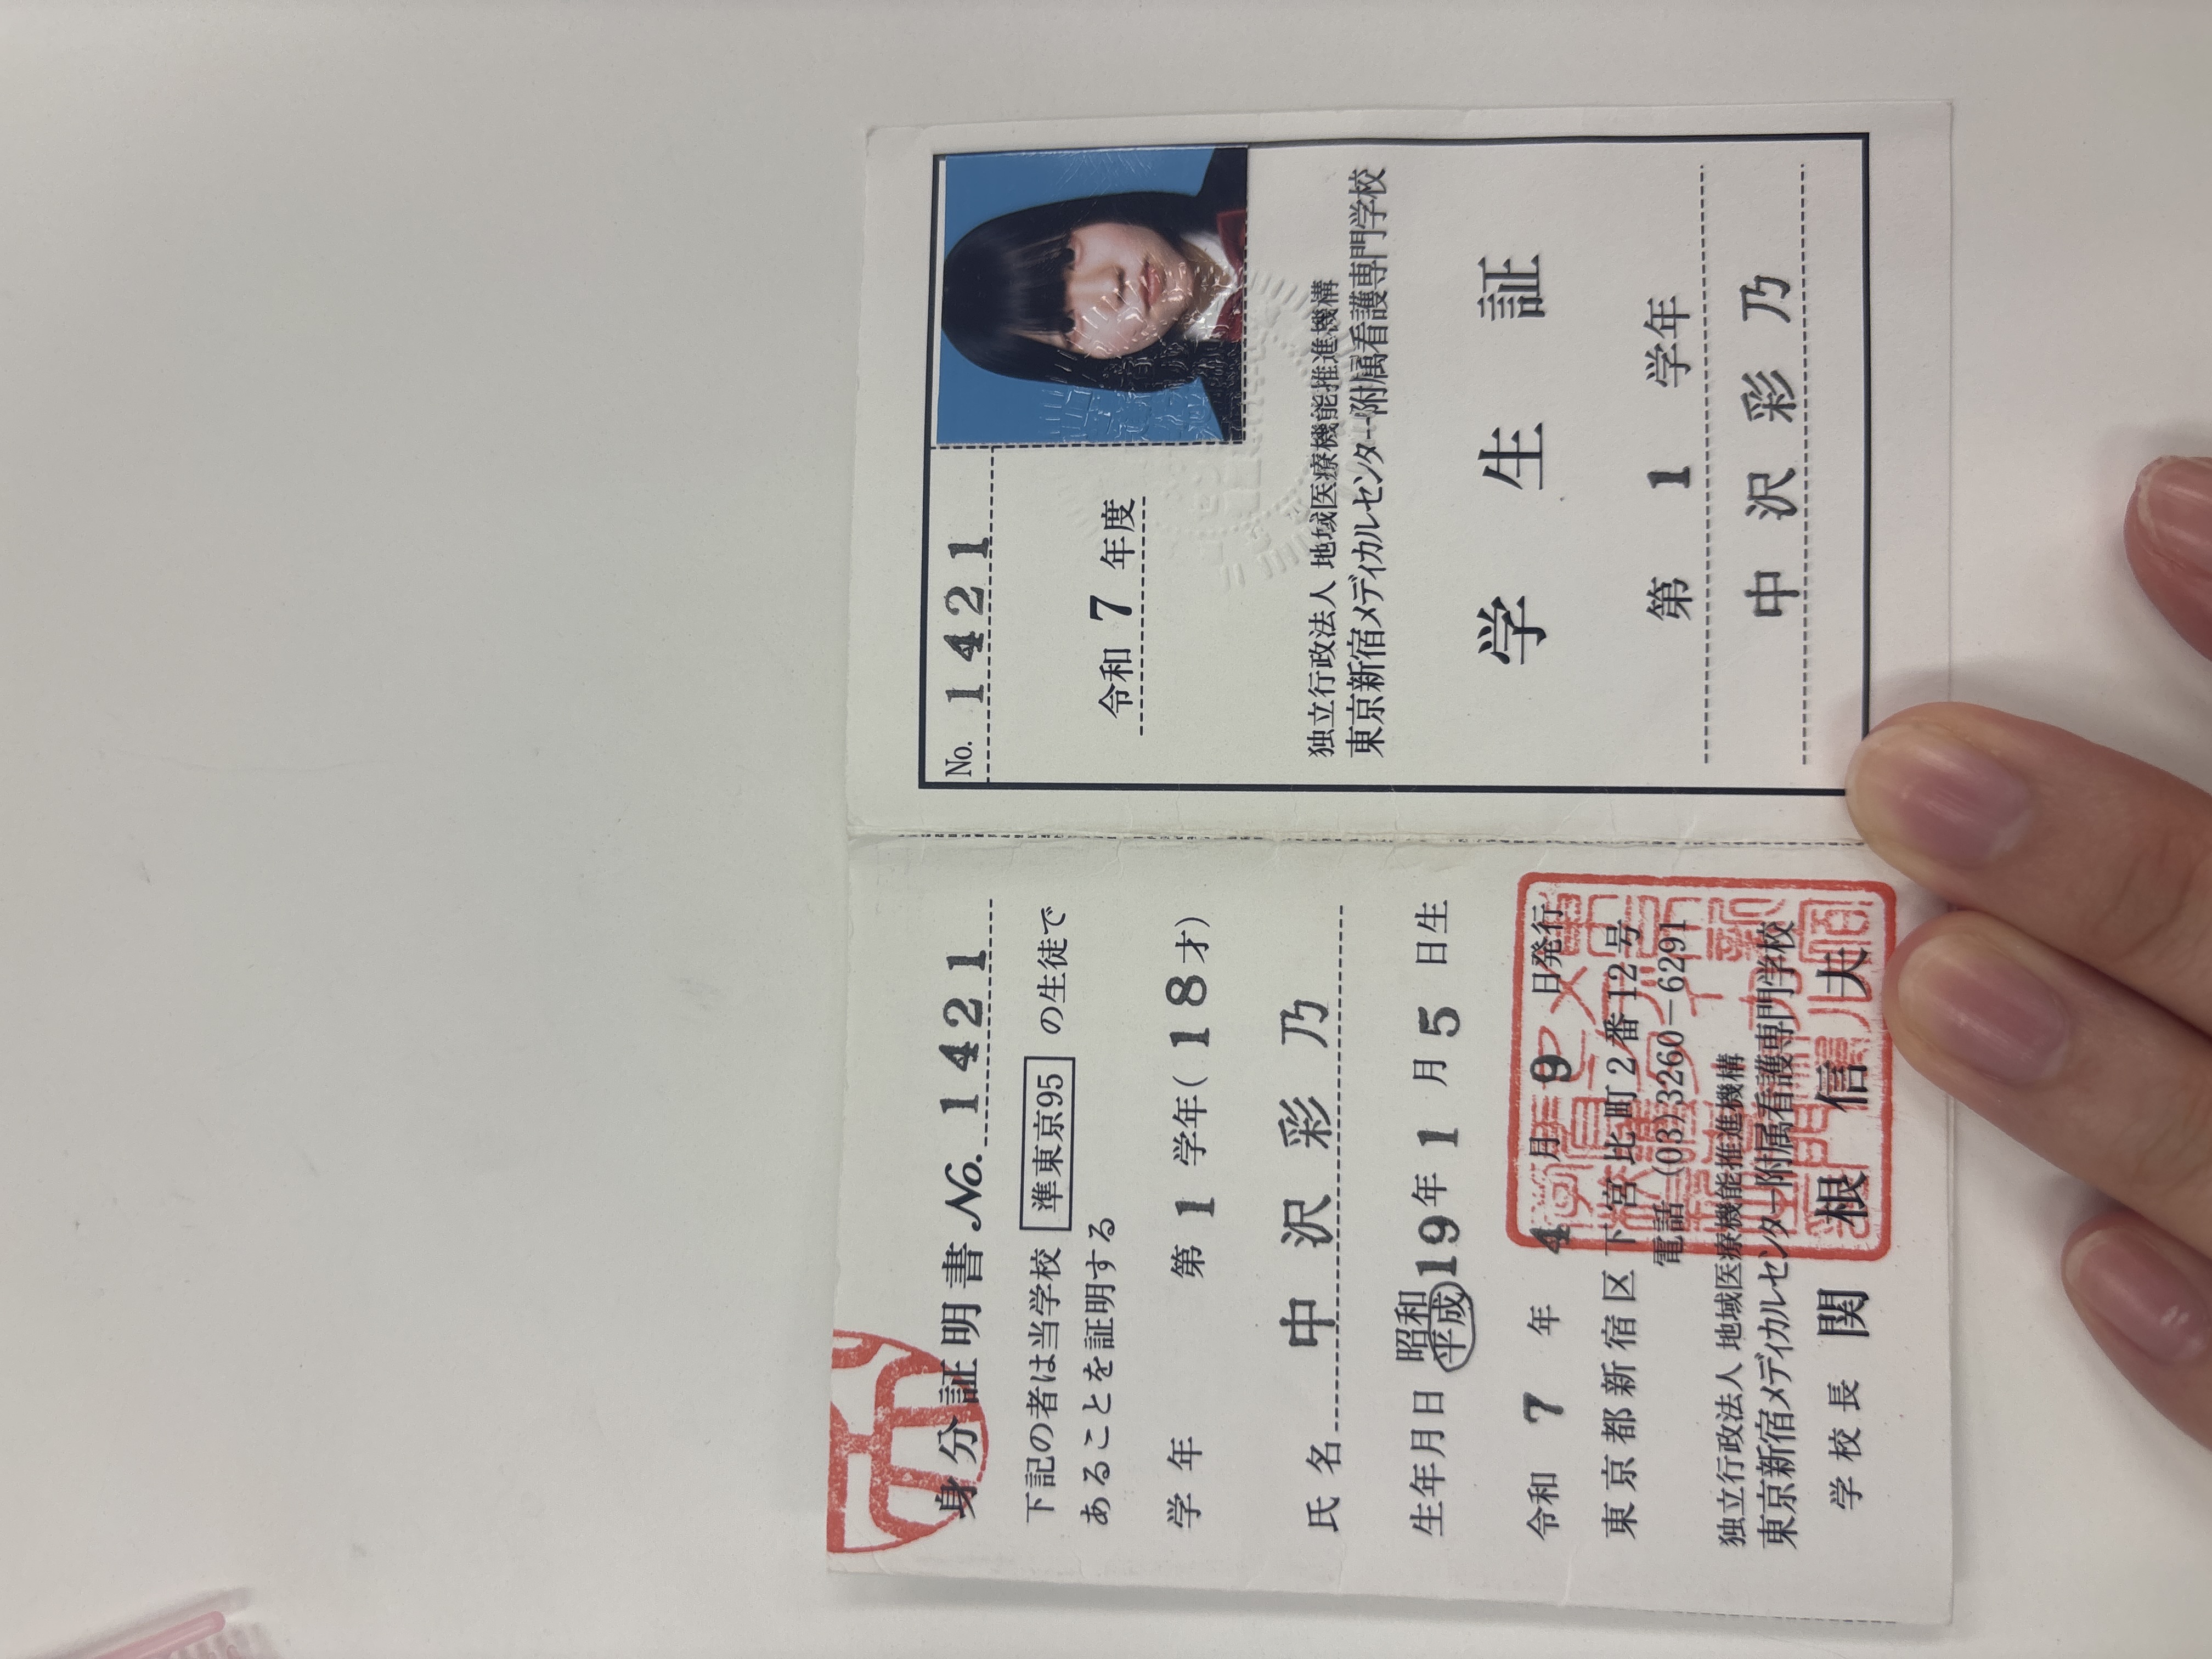 身分証明書 No. 1421
下記の者は当学校 準東京95 の生徒で
あることを証明する
学年 第 1 学年(18才)
氏名 中沢彩乃
生年月日 昭和 平成 19年 1月 5日生
令和 7年 4月 9日発行
東京都新宿区下宮比町2番12号
電話(03)3260-6291
独立行政法人 地域医療機能推進機構
東京新宿メディカルセンター附属看護専門学校
学校長 関根信夫
No. 1421
令和 7 年度
独立行政法人 地域医療機能推進機構
東京新宿メディカルセンター附属看護専門学校
学生証
第 1 学年
中沢彩乃